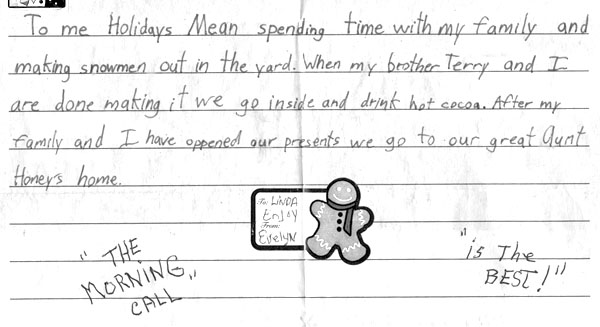 To me Holidays Mean spending time with my family and
making snowmen out in the yard. When my brother Terry and I
are done making it we go inside and drink hot cocoa. After my
family and I have oppened our presents we go to our great Aunt
Honey's home.
To: LINDA
EnJoY
From:
EvelyN
"THE
MORNING
CALL"
"is The
BEST!"